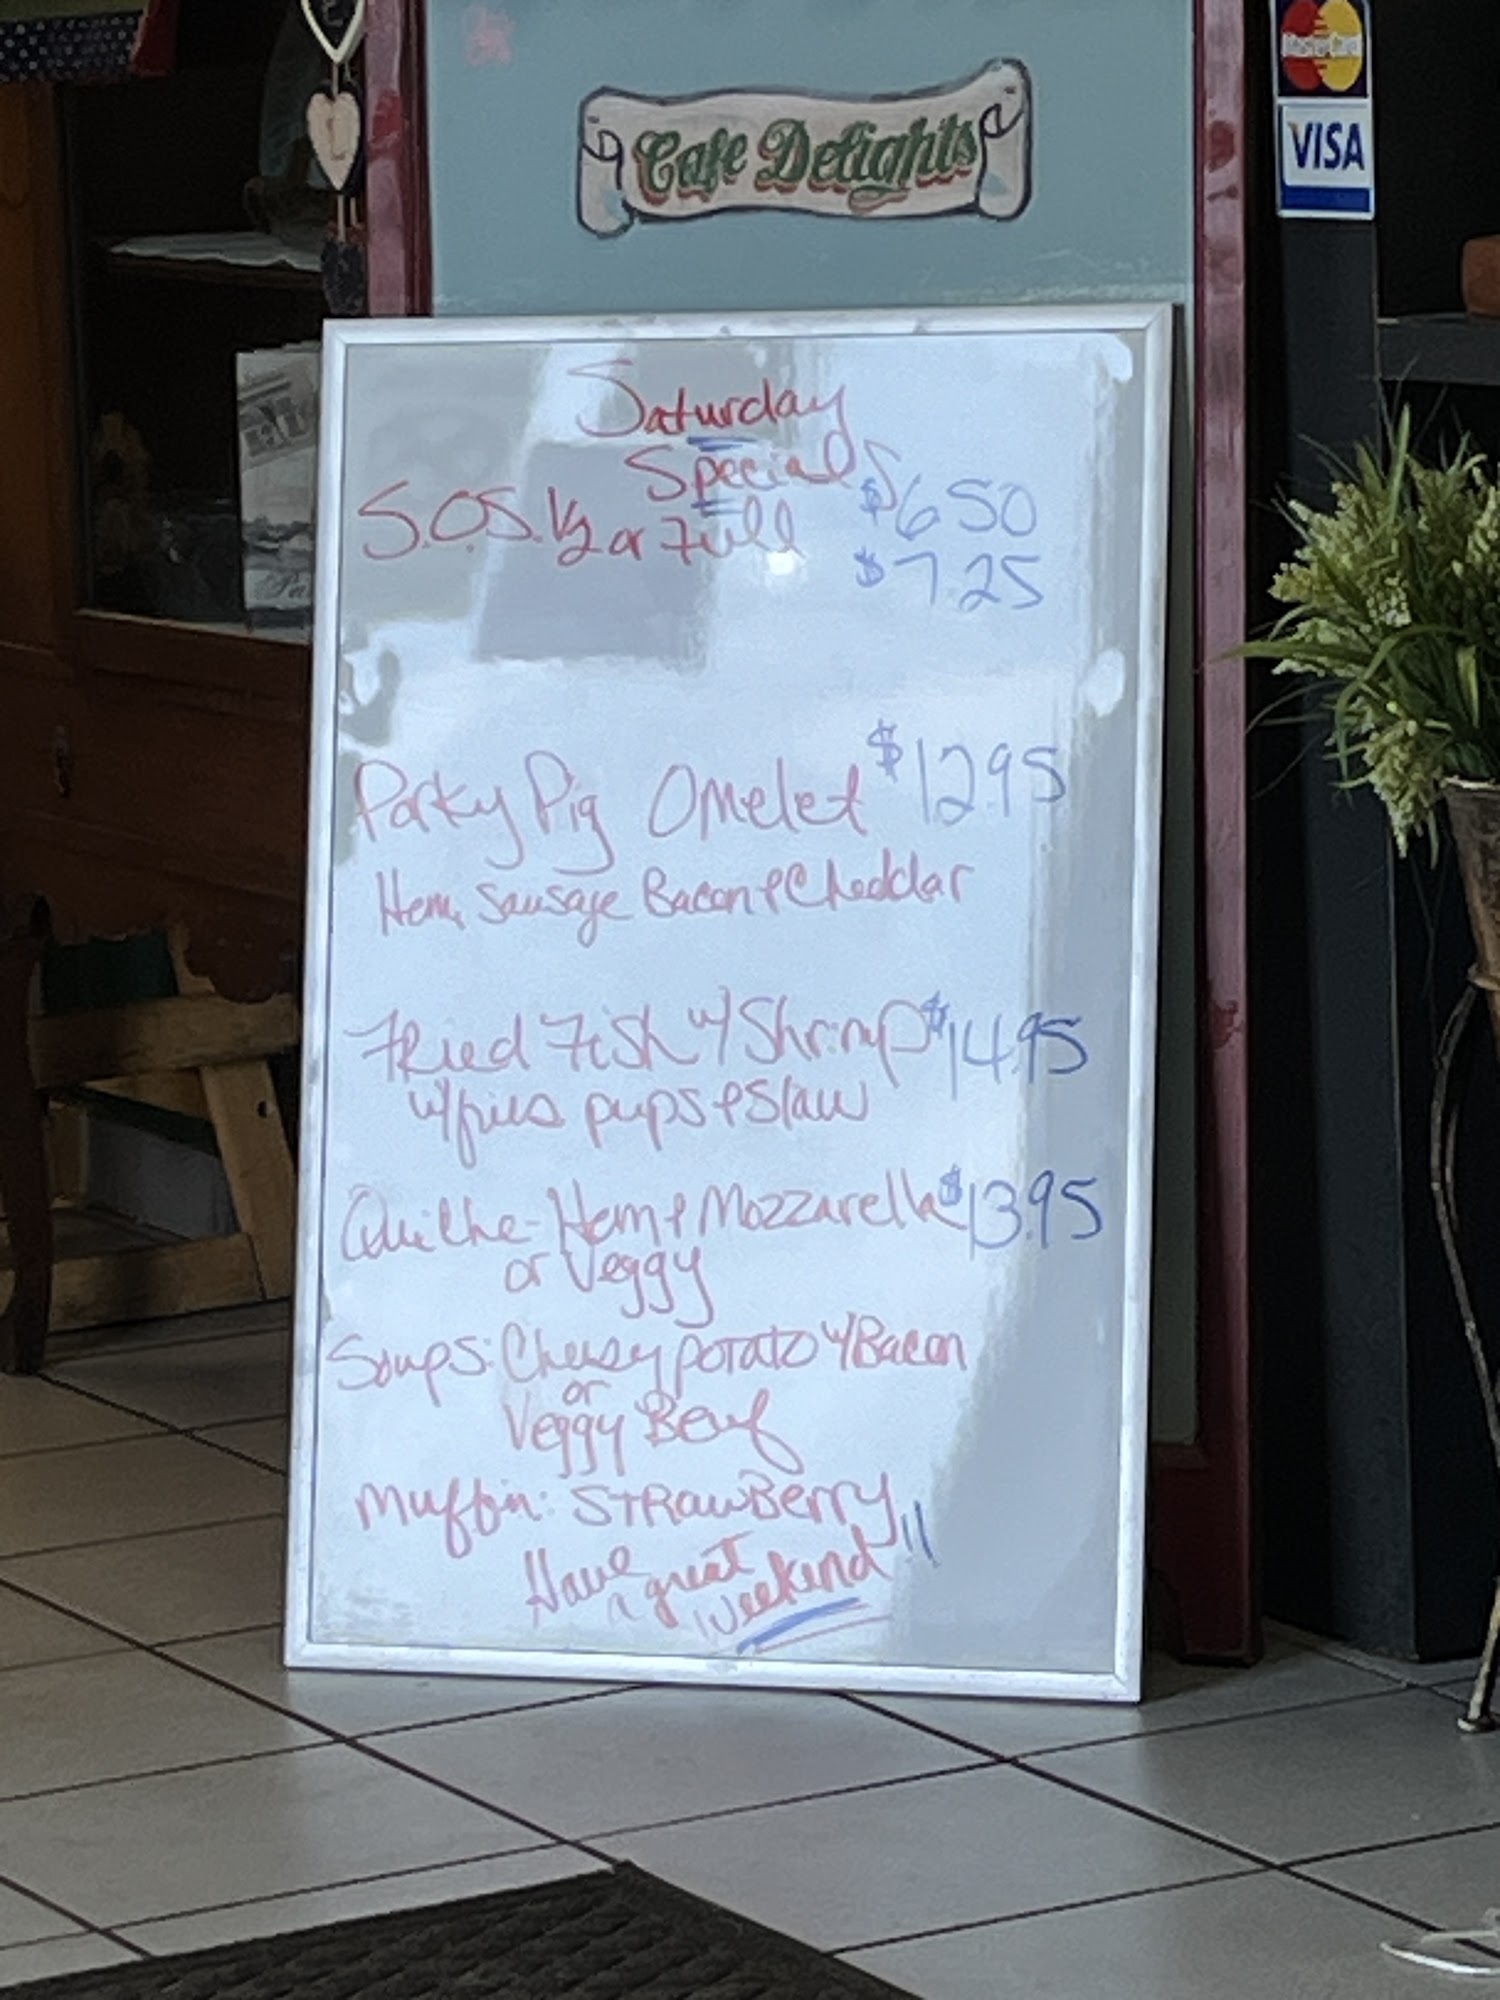 Cafe Delights
MasterCard
VISA
Saturday
Specials
S.O.S. 1/2 or Full $6.50
$7.25
Porky Pig Omelet $12.95
Ham, Sausage Bacon & Cheddar
Fried Fish w/ Shrimp $14.95
w/ fries pups & slaw
Quiche - Ham & Mozzarella $13.95
or Veggy
Soups: Cheesy potato w/ Bacon
or
Veggy Beef
Muffin: STRawBerry
Have
a great
weekend!!